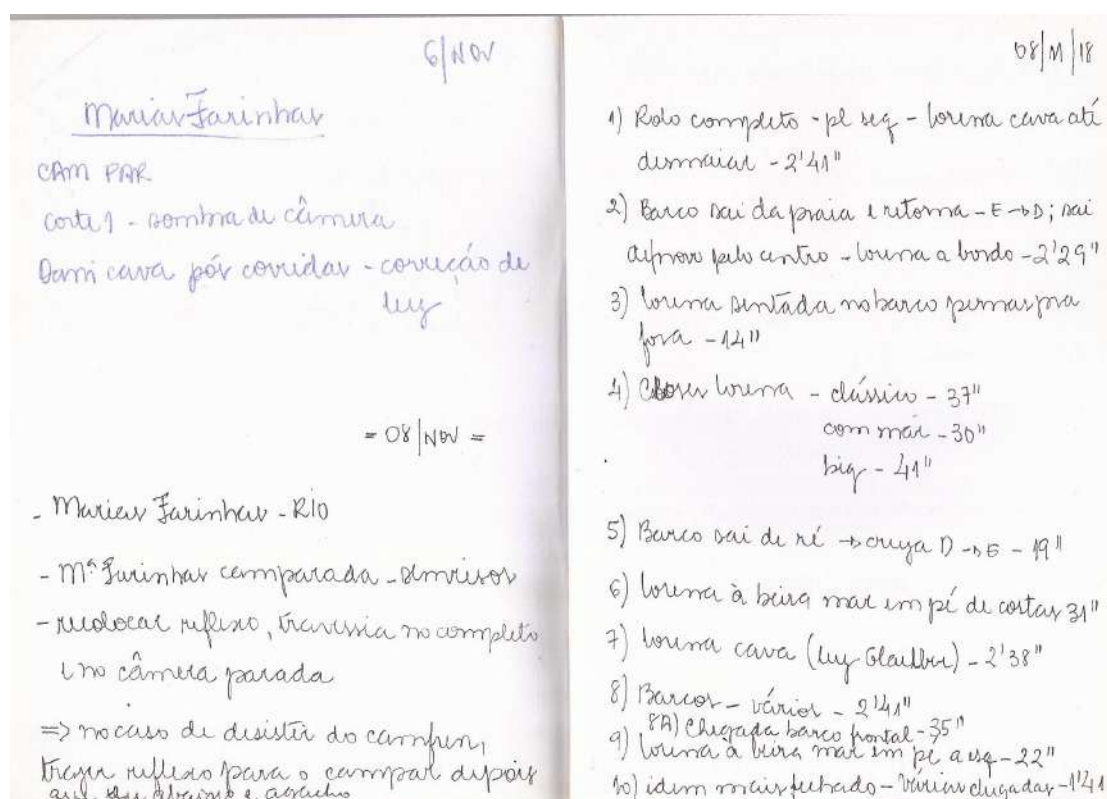 6/NOV
Marias Farinhas
CAM PAR
corte 1 - sombra de câmera
Dami cava pós corridas - correção de
luz
= 08/NOV =
- Marias Farinhas - RIO
- Mª Farinhas camparada - s/mrisos
- recolocar reflexo, travessia no completo
e no câmera parada
=> no caso de desistir do
trazer reflexo para o campar depois
que abaixo e
08/11/18
1) Rolo completo - pl seq - Lorena cava até
desmaiar - 2'41"
2) Barco sai da praia e retorna - E → D; sai
de novo pelo centro - Lorena a bordo - 2'29"
3) Lorena sentada no barco pernas pra
fora - 14"
4) Closes Lorena - clássico - 37"
com mar - 30"
big - 41"
5) Barco sai de ré → cruza D → E - 19"
6) Lorena à beira mar em pé de costas 31"
7) Lorena cava (luz Glauber) - 2'38"
8) Barcos - vários - 2'41"
8A) Chegada barco frontal - 35"
9) Lorena à beira mar em pé a esq - 22"
10) idem mais fechado - várias chegadas - 1'41